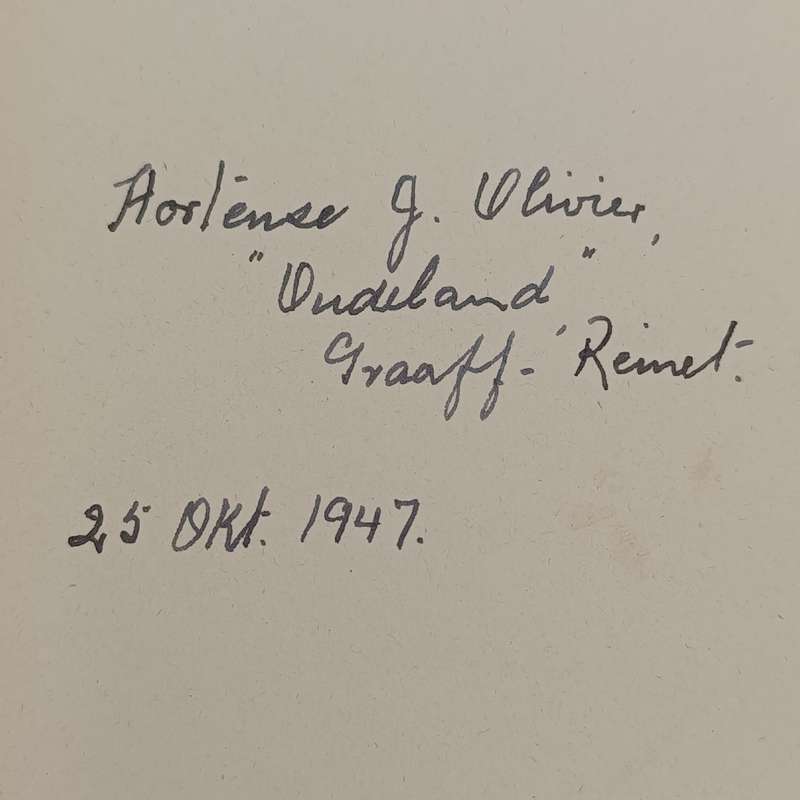 Hortense J. Olivier,
"Oudeland"
Graaff-Reinet.
25 Okt. 1947.